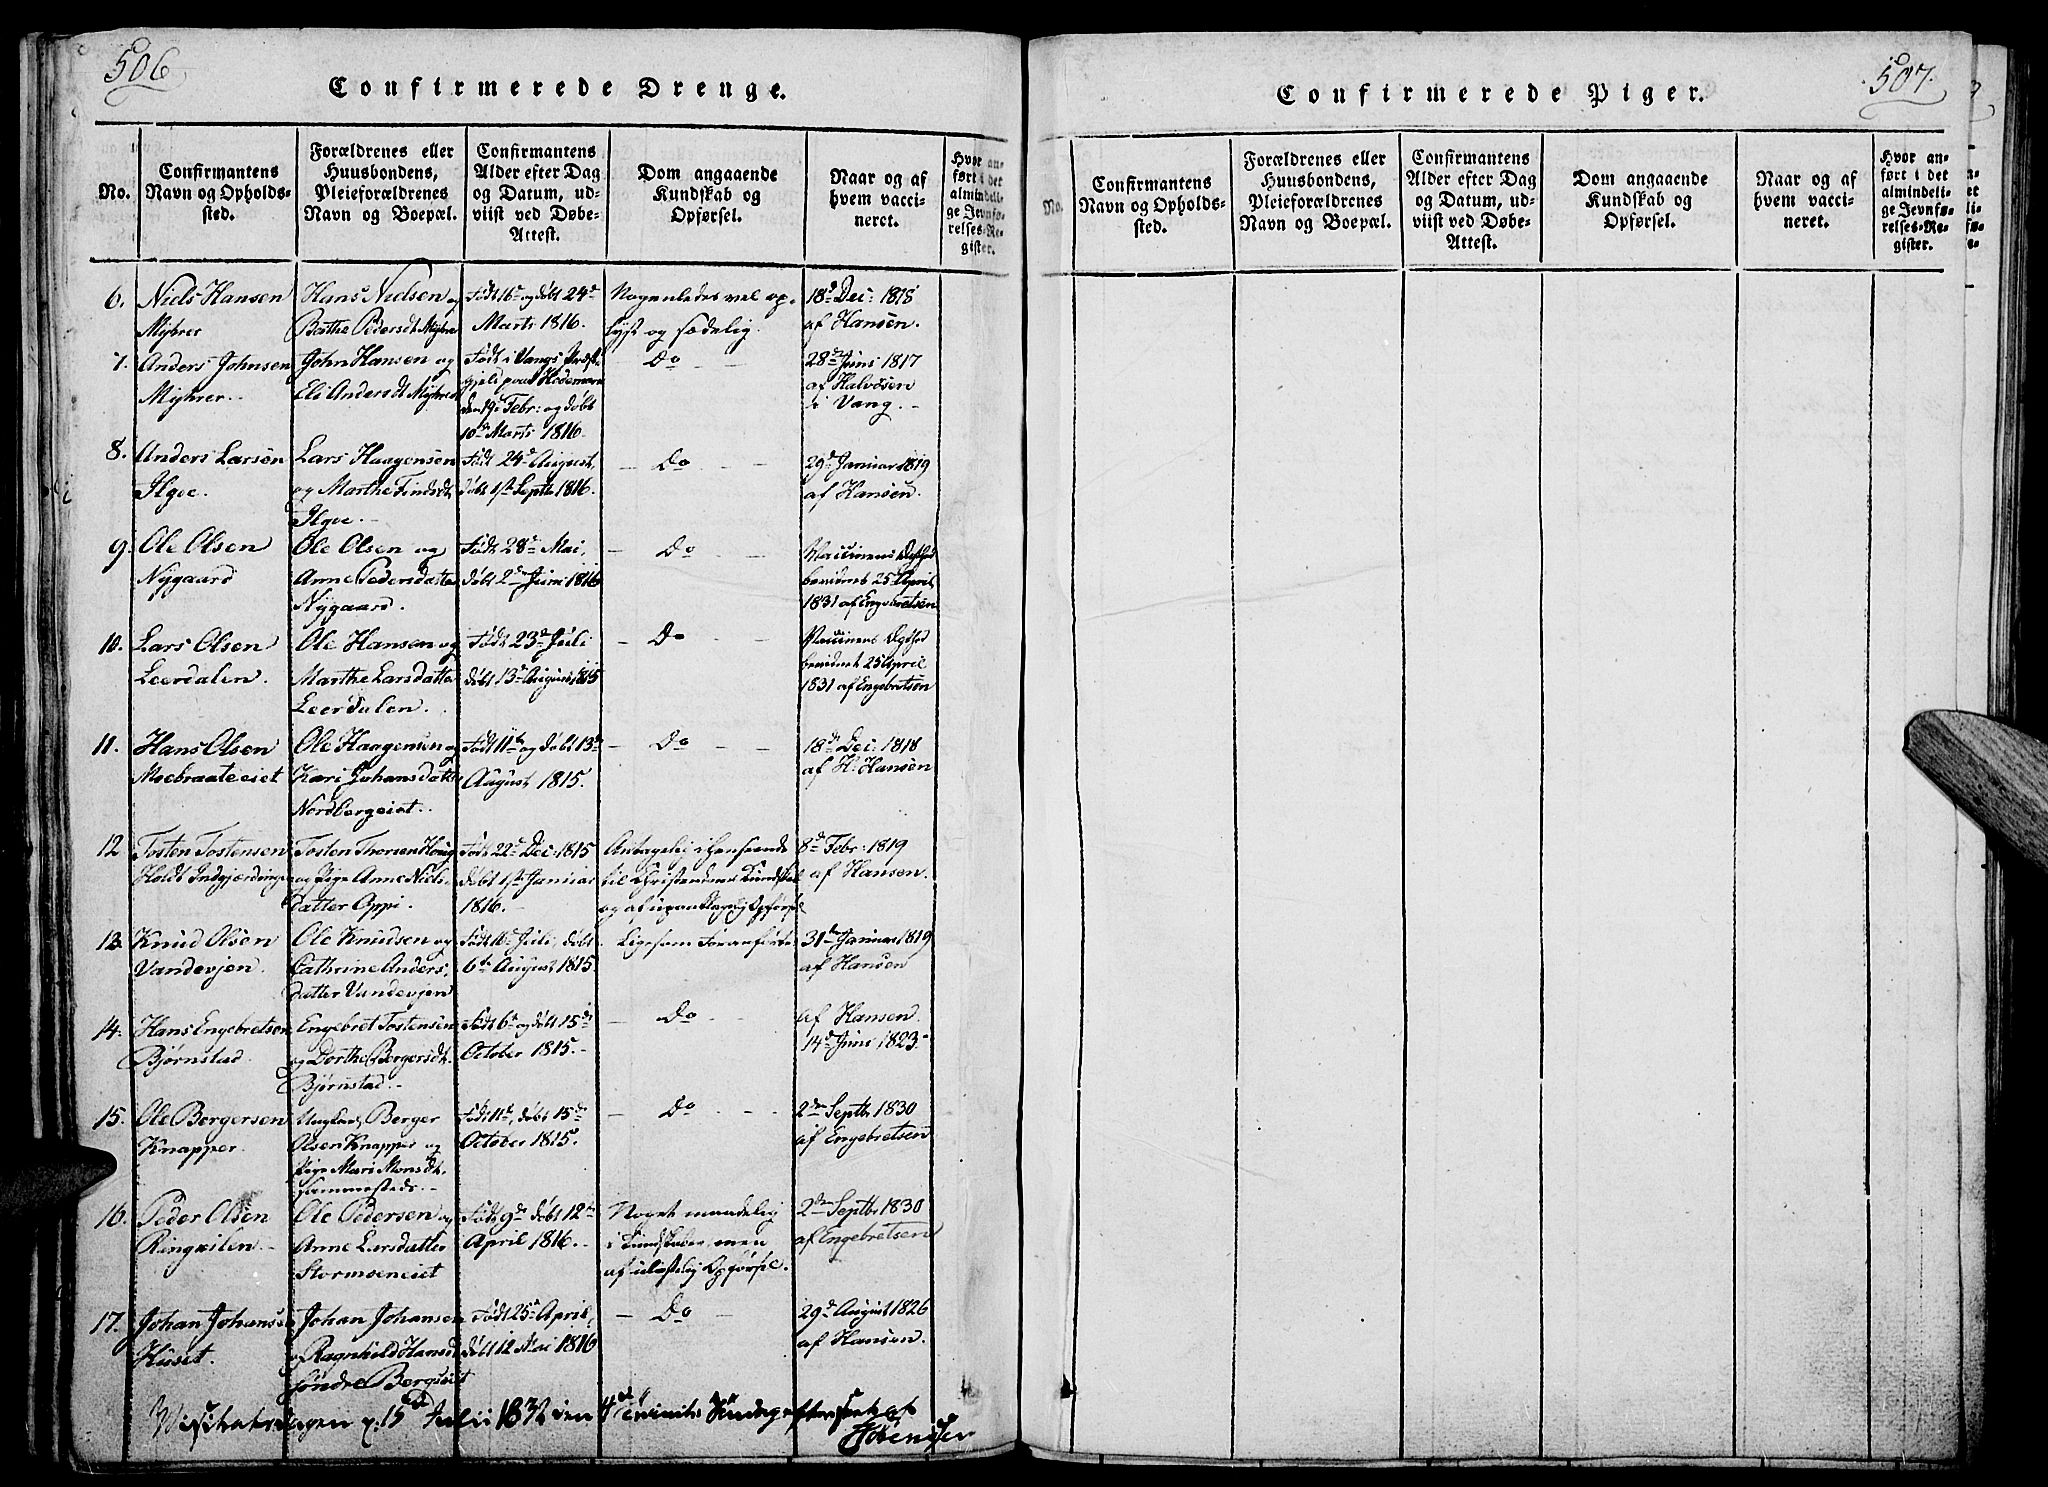 506
Confirmerede Drenge.
No.
Confirmantens
Navn og Opholds-
sted.
Forældrenes eller
Huusbondens,
Pleieforældrenes
Navn og Boepæl.
Confirmantens
Alder efter Dag
og Datum, ud-
viist ved Døbe-
Attest.
Dom angaaende
Kundskab og
Opførsel.
Naar og af
hvem vacci-
neret.
Hvor an-
ført i det
almindeli-
ge Jevnfø-
relses-Re-
gister.
6.
Niels Hansen
Myhrer
Hans Nielsen og
Berthe Pedersdt Myhrer
Født 16de og døbt 24de
Marts 1816.
Nogenledes vel op-
lyst og sædelig.
18de Dec: 1818
af Hansen.
7.
Anders Johnsen
Myhrer
John Hansen og
Eli Andersdt Myhrer
Født i Vangs Præst-
gjeld paa Hedemark
den 19de Febr: og døbt
10de Marts 1816.
Do
28de Juni 1817
af Halvosen
i Vang.
8.
Anders Larsen
Ilgoe.
Lars Haagensen
og Marthe Findsdt
Ilgoe.
Født 24de August,
døbt 1ste Septbr 1816.
Do
29de Januar 1819
af Hansen.
9.
Ole Olsen
Nygaard
Ole Olsen og
Anne Pedersdatter
Nygaard.
Født 28de Mai,
døbt 2den Juni 1816
Do
Vaccinens Ægthed
bevidnet 25de April
1831 af Engebretsen
10.
Lars Olsen
Leerdalen.
Ole Hansen og
Marthe Larsdatter
Leerdalen.
Født 23de Juli
døbt 13de August 1815
Do
Vaccinens Ægthed
bevidnet 25 April
1831 af Engebretsen
11.
Hans Olsen
Moebraateeiet
Ole Haagensen og
Kari Johansdatter
Nordbergeiet.
Født 11te og døbt 13de
August 1815.
Do
18de Dec: 1818
af H: Hansen
12
Tosten Tostensen
Holdt Indgjærdingen
Tosten Thorsen
og Pige Anne Niels-
datter Oppi.
Født 22de Dec: 1815
døbt 1ste Januar
1816.
Antagelig i Henseende
til Christendoms Kundskab
og af upaaklagelig Opførsel
8de Febr: 1819
af Hansen.
13.
Knud Olsen
Vandevjen.
Ole Knudsen og
Cathrine Anders-
datter Vandevjen
Født 16de Juli, døbt
6te August 1815.
Ligesom Foranførte
31te Januar 1819
af Hansen
14.
Hans Engebretsen
Bjørnstad.
Engebret Tostensen
og Dorthe Bergersdt.
Bjørnstad.
Født 6te og døbt 15de
October 1815.
Do
af Hansen.
14de Juni 1823.
15.
Ole Bergersen
Knapper.
Ungkarl Berger
Olsen Knapper og
Pige Mari Monsdt.
sammesteds.
Født 11te, døbt 15de
October 1815.
Do
2den Septbr 1830
af Engebretsen
16.
Peder Olsen
Ringvilen.
Ole Pedersen og
Anne Larsdatter
Stormoeneiet
Født 9de døbt 12te
April 1816.
Noget maadelig
i Kundskaber, men
af ulastelig Opførsel.
2den Septbr 1830
af Engebretsen
17.
Johan Johansen
Huset.
Johan Johansen
og Ragnhild Hansdt
søndre Bergseiet
Født 25de April,
døbt 12 Mai 1816
Do
29de August 1826
af Hansen.
15de Julii 1832 den 4de Trinit: Søndag
507.
Confirmerede Piger.
No.
Confirmantens
Navn og Opholds-
sted.
Forældrenes eller
Huusbondens,
Pleieforældrenes
Navn og Boepæl.
Confirmantens
Alder efter Dag
og Datum, ud-
viist ved Døbe-
Attest.
Dom angaaende
Kundskab og
Opførsel.
Naar og af
hvem vacci-
neret.
Hvor an-
ført i det
almindeli-
ge Jevnfø-
relses-Re-
gister.